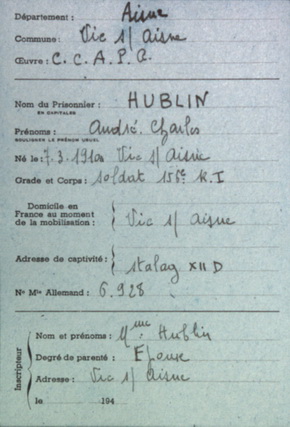 Département : Aisne
Commune : Vic s/ aisne
Œuvre : C. C. A. P. G.
Nom du Prisonnier : HUBLIN
EN CAPITALES
Prénoms : André. Charles
SOULIGNER LE PRÉNOM USUEL
Né le : 7. 3. 1910 Vic s/ aisne
Grade et Corps : soldat 155e R. I
Domicile en
France au moment
de la mobilisation : Vic s/ aisne
Adresse de captivité : stalag XII D
No Mle Allemand : 6.928
Inscripteur
Nom et prénoms : Mme Hublin
Degré de parenté : Epouse
Adresse : Vic s/ aisne
le 194